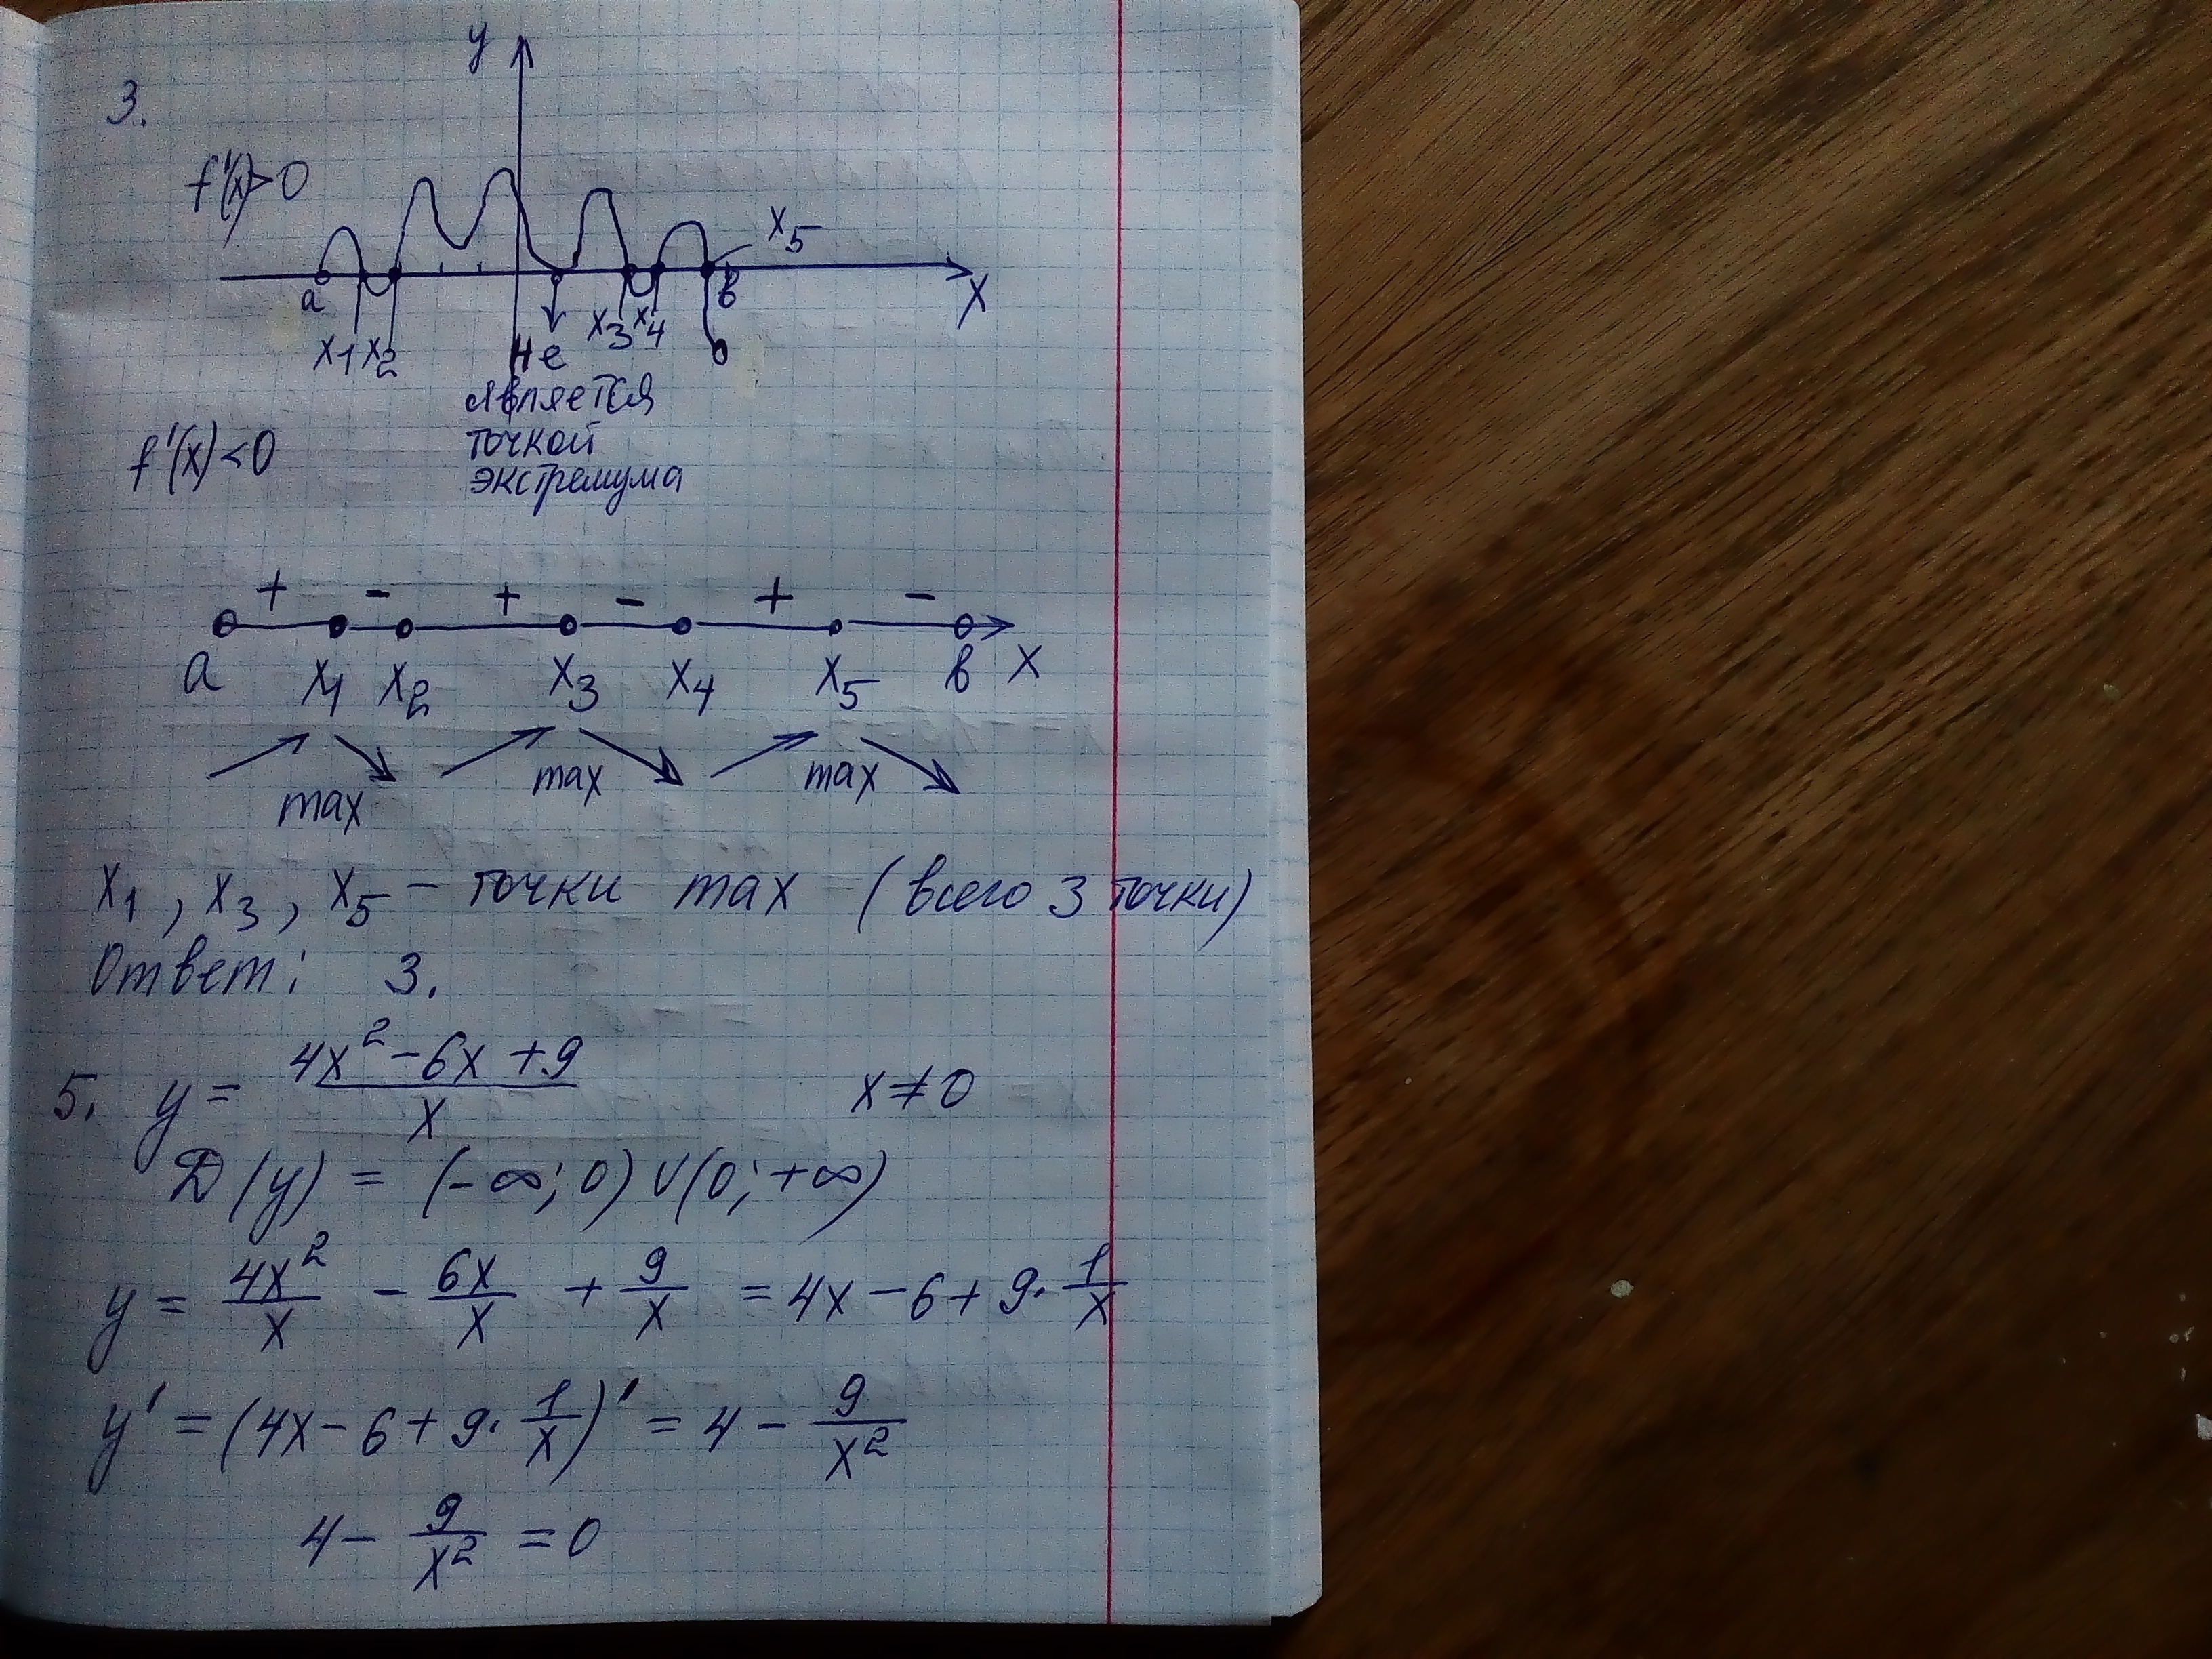 y
3.
f'(x)>0
x₅
a
в
x
x₁ x₂
x₃ x₄
Не
является
точкой
экстремума
f'(x)<0
+ - + - + -
a x₁ x₂ x₃ x₄ x₅ в x
max max max
x₁, x₃, x₅ – точки max (всего 3 точки)
Ответ: 3.
5. y = (4x² - 6x + 9)/x x ≠ 0
D(y) = (-∞; 0) ∪ (0; +∞)
y = 4x²/x - 6x/x + 9/x = 4x - 6 + 9 · 1/x
y' = (4x - 6 + 9 · 1/x)' = 4 - 9/x²
4 - 9/x² = 0